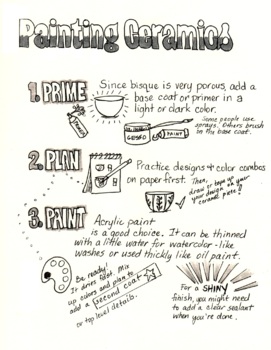 Painting Ceramics!
1. PRIME
Since bisque is very porous, add a
base coat or primer in a
light or dark color.
Some people use
sprays. Others brush
on the base coat.
GESSO
PAINT
2. PLAN
Practice designs & color combos
on paper first.
Then,
draw or tape
your design on
ceramic piece!
3. PAINT
Acrylic paint
is a good choice. It can be thinned
with a little water for watercolor-like
washes or used thickly like oil paint.
Be ready!
It dries fast. Mix
up colors and plan to
add a second coat
or top level details.
For a SHINY
finish, you might need
to add a clear sealant
when you're done.